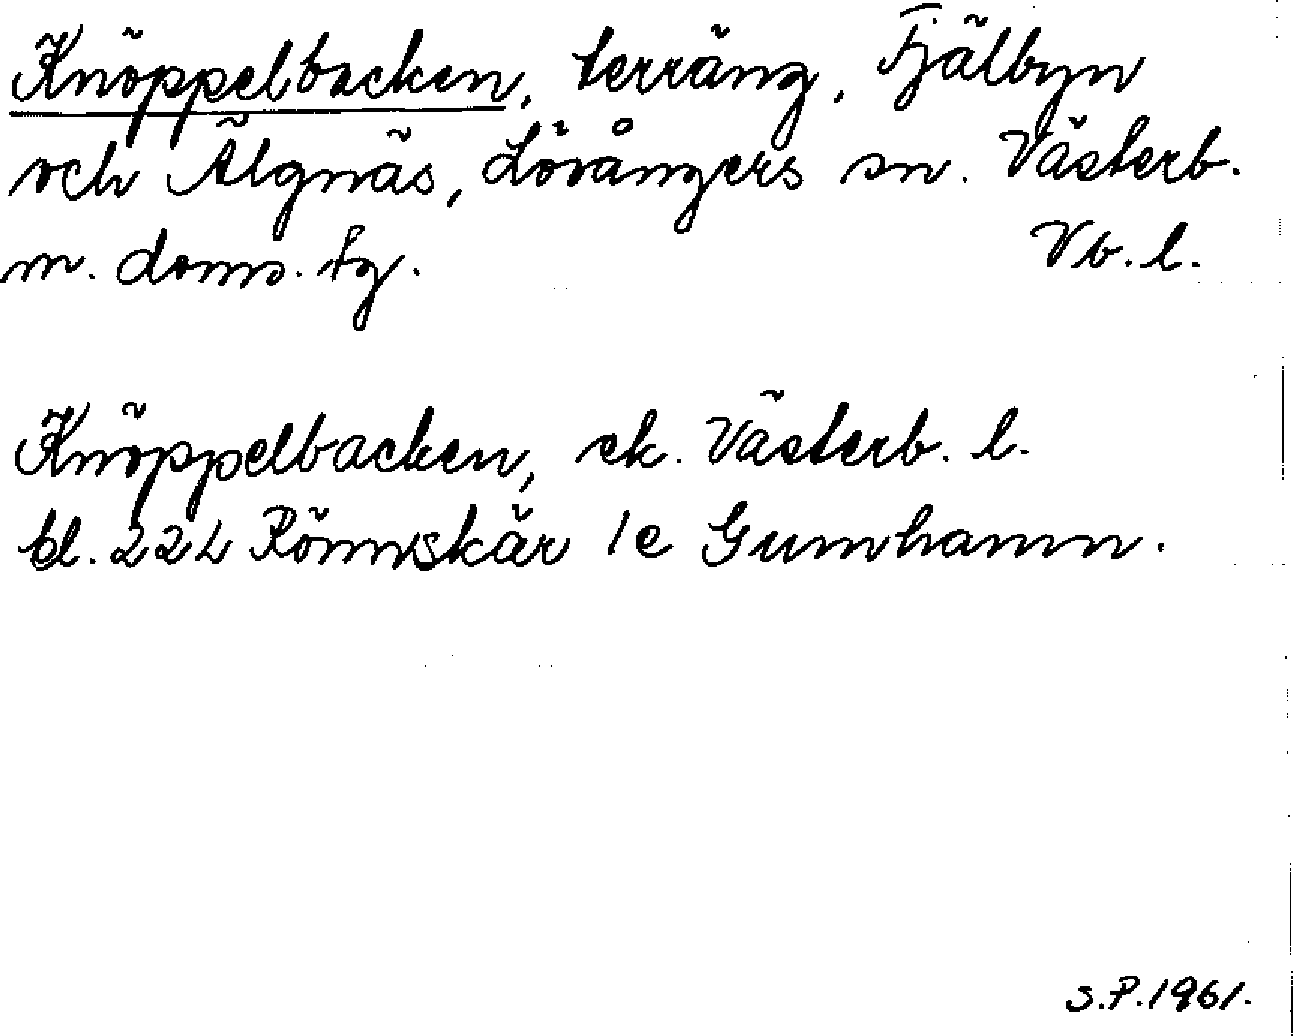 Knöppelbacken, terräng, Fjälbyn
och Älgnäs, Lövångers sn. Västerb.
m. doms. fg. Vb. l.
Knöppelbacken, ek. Västerb. l.
bl. 22 L Rönnskär 1e Gumhamn.
S.P. 1961.